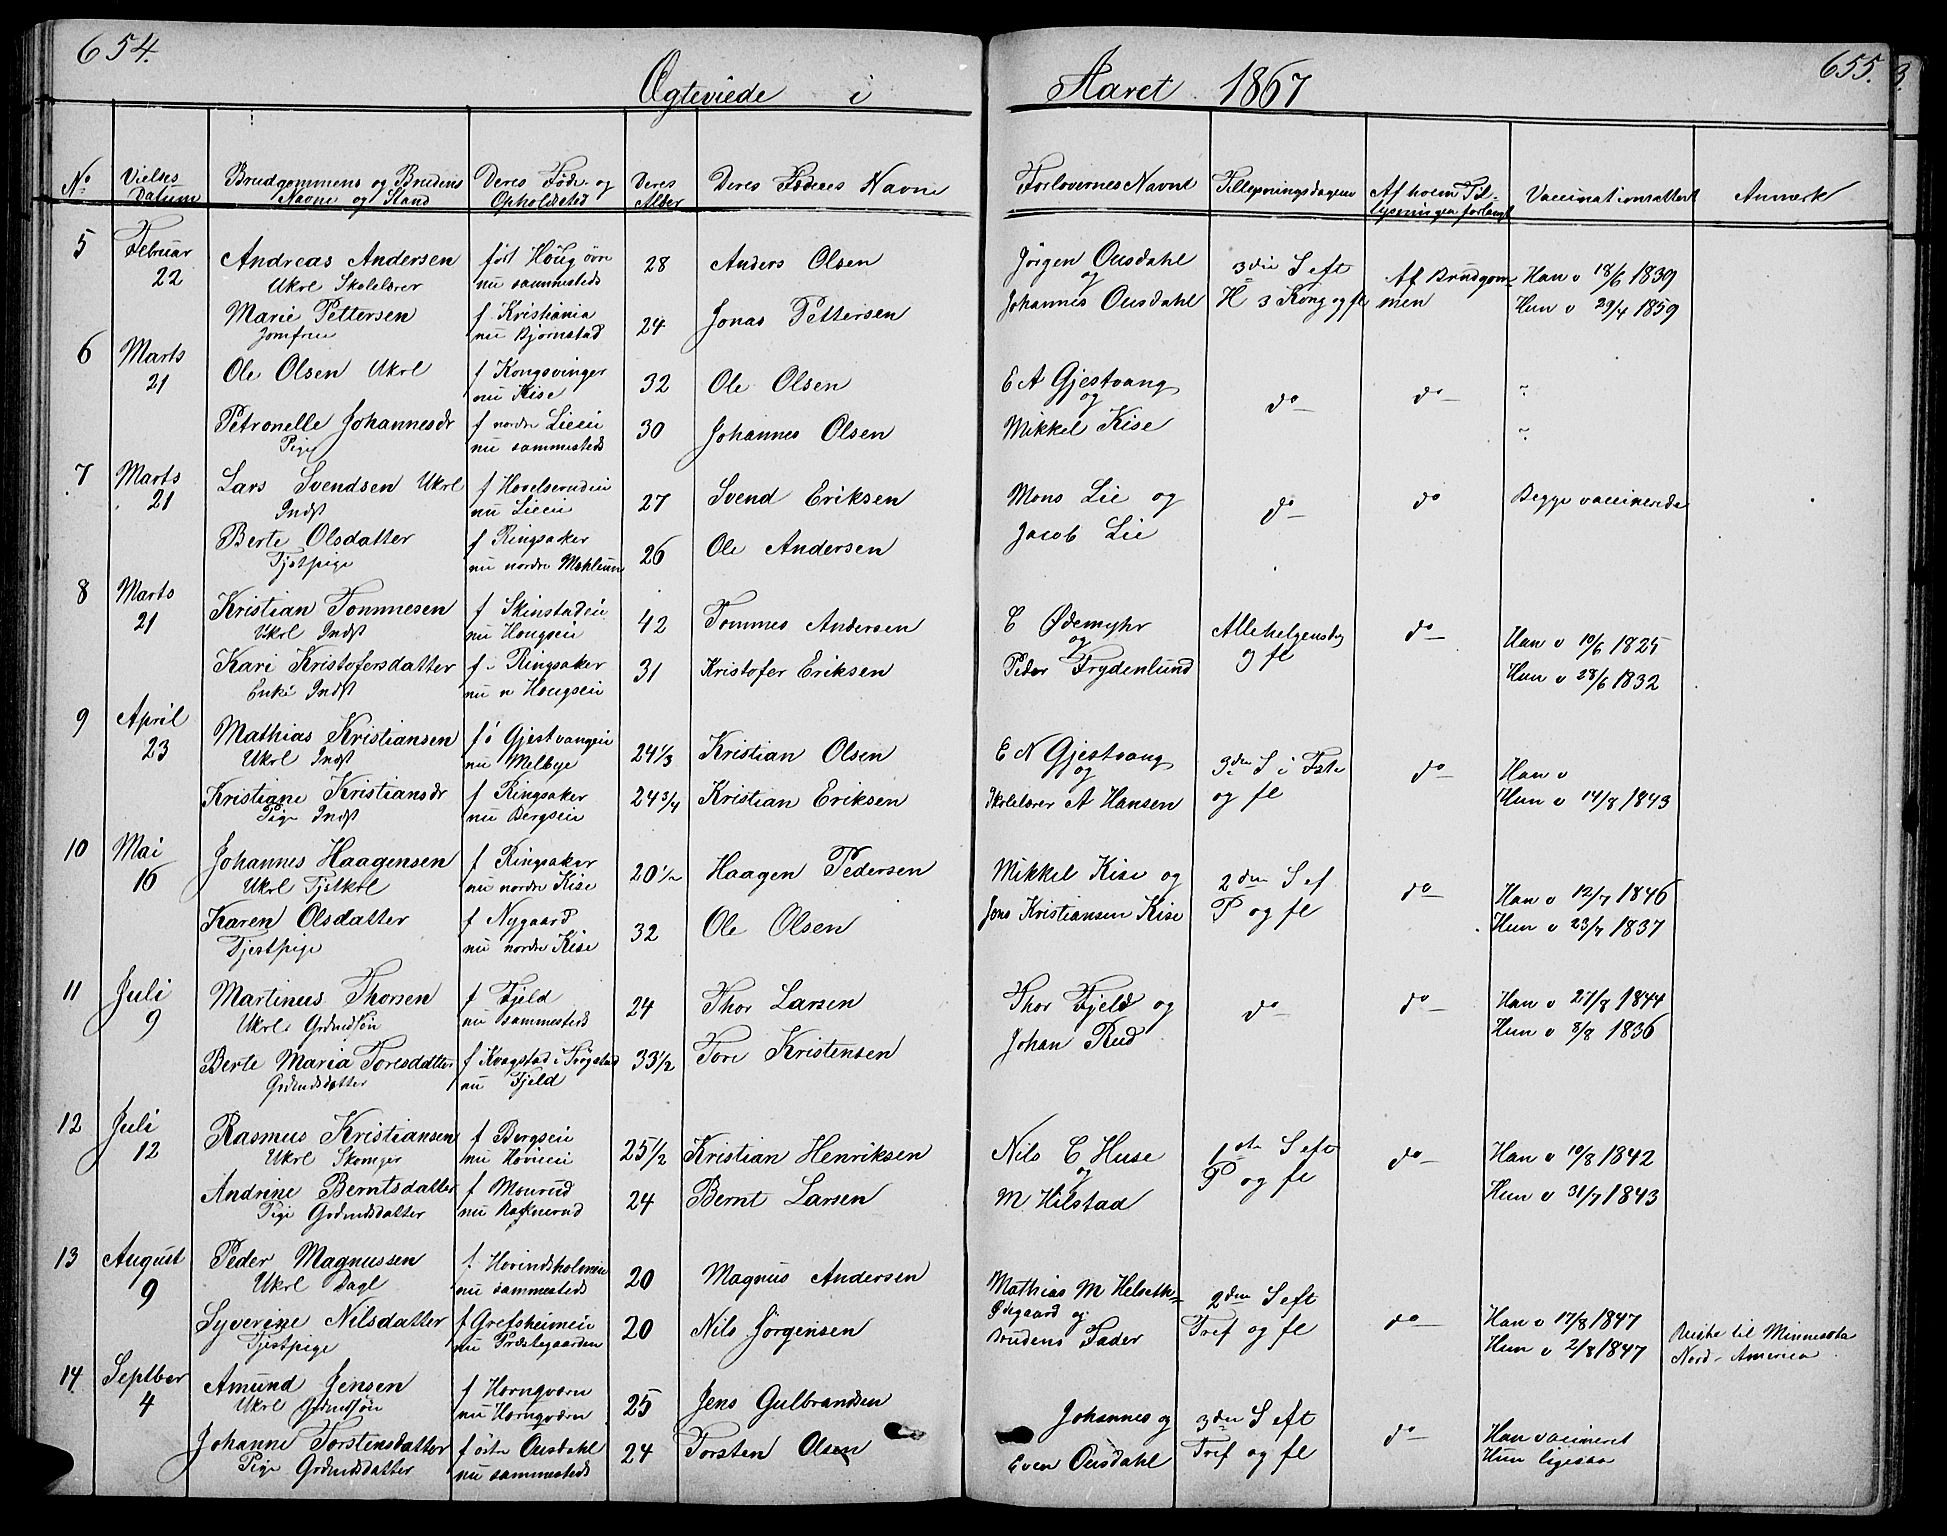 654.
Ægteviede i
No
Vielses Datum
Brudgommens og Brudens Navne og Stand
Deres Føde- og Opholdsted
Deres Alder
Deres Fædres Navne
5 Februar 22
Andreas Andersen født Houg øvre 28 Anders Olsen
Ukrl Skolelærer nu sammesteds
Marie Pettersen f Kristiania 24 Jonas Pettersen
Jomfrue nu Bjørnstad
6 Marts 21
Ole Olsen Ukrl f Kongsvinger 32 Ole Olsen
nu Kise
Petronelle Johannesdr f nordre Lieeie 30 Johannes Olsen
Pige nu sammesteds
7 Marts 21
Lars Svendsen Ukrl f Hovelsrudeie 27 Svend Eriksen
Indst nu Lieeie
Berte Olsdatter f Ringsaker 26 Ole Andersen
Tjstpige nu nordre Mæhlum
8 Marts 21
Kristian Tommesen f Skinstadeie 42 Tommes Andersen
Ukrl Indst nu Hougseie
Kari Kristofersdatter f i Ringsaker 31 Kristofer Eriksen
Enke Indst nu n Hougseie
9 April 23
Mathias Kristiansen f i Gjestvangeie 24 1/3 Kristian Olsen
Ukrl Indst nu Melbye
Kristiane Kristiansdr f Ringsaker 24 3/4 Kristian Eriksen
Pige Indst nu Bergseie
10 Mai 16
Johannes Haagensen f Ringsaker 20 1/2 Haagen Pedersen
Ukrl Tjstkrl nu nordre Kise
Karen Olsdatter f Nygaard 32 Ole Olsen
Tjestpige nu nordre Kise
11 Juli 9
Martinus Thorsen f Fjeld 24 Thor Larsen
Ukrl Grdmdsøn nu sammesteds
Berte Maria Toresdatter f Kvagstad i Trøgstad 33 1/2 Tore Kristensen
Grdmdsdatter nu Fjeld
12 Juli 12
Rasmus Kristiansen f Bergseie 25 1/2 Kristian Henriksen
Ukrl Skomger nu Hovieeie
Andrine Berntsdatter f Mourud 24 Bernt Larsen
Pige Grdmdsdatter nu Rafnerud
13 August 9
Peder Magnussen f Hovindsholmeie 20 Magnus Andersen
Ukrl Dagl nu sammesteds
Syverine Nilsdatter f Grefsheimeie 20 Nils Jørgensen
Tjestpige nu Præstegaarden
14 Septber 4
Amund Jensen f Horngværn 25 Jens Gulbrandsen
Ukrl Grdmdsøn nu Horngværn
Johanne Torstensdatter f østre Ousdahl 24 Torsten Olsen
Pige Grdmdsdatter nu sammesteds
655.
3.
Aaret 1867
Forlovernes Navne
Tillysningsdagene
Af hvem Tillysningen forlangt
Vaccinationsattest
Anmærk
Jørgen Ousdahl 3die S eft Af Brudgom- Han v 18/6 1839
og
Johannes Ousdahl H 3 Kong og fl men Hun v 29/4 1859
E A Gjestvang do do "
og
Mikkel Kise "
Mons Lie og do do Begge vaccinerede
Jacob Lie
E Ødemyhr Allehelgensdg do Han v 10/6 1825
og og fl
Peder Frydenlund Hun v 28/6 1832
E N Gjestvang 3die S i Fste do Han v
og og fl
Skolelærer A Hansen Hun v 14/8 1843
Mikkel Kise og 2den S ef do Han v 12/7 1846
Jens Kristiansen Kise P og fl Hun v 23/7 1837
Thor Fjeld og do do Han v 27/8 1844
Johan Rud Hun v 8/8 1836
Nils E Huse 1ste S eft do Han v 10/8 1842
og P og fl
M Hilstad Hun v 31/7 1843
Mathias M Helseth- 2den S eft do Han v 17/8 1847
Ødegaard og Tref og fl Hun v 2/8 1847 Reiste til Minnesota
Brudens Fader Nord-America
Johannes og 3die S eft do Han vaccineret
Even Ousdahl Tref og fl Hun ligesaa